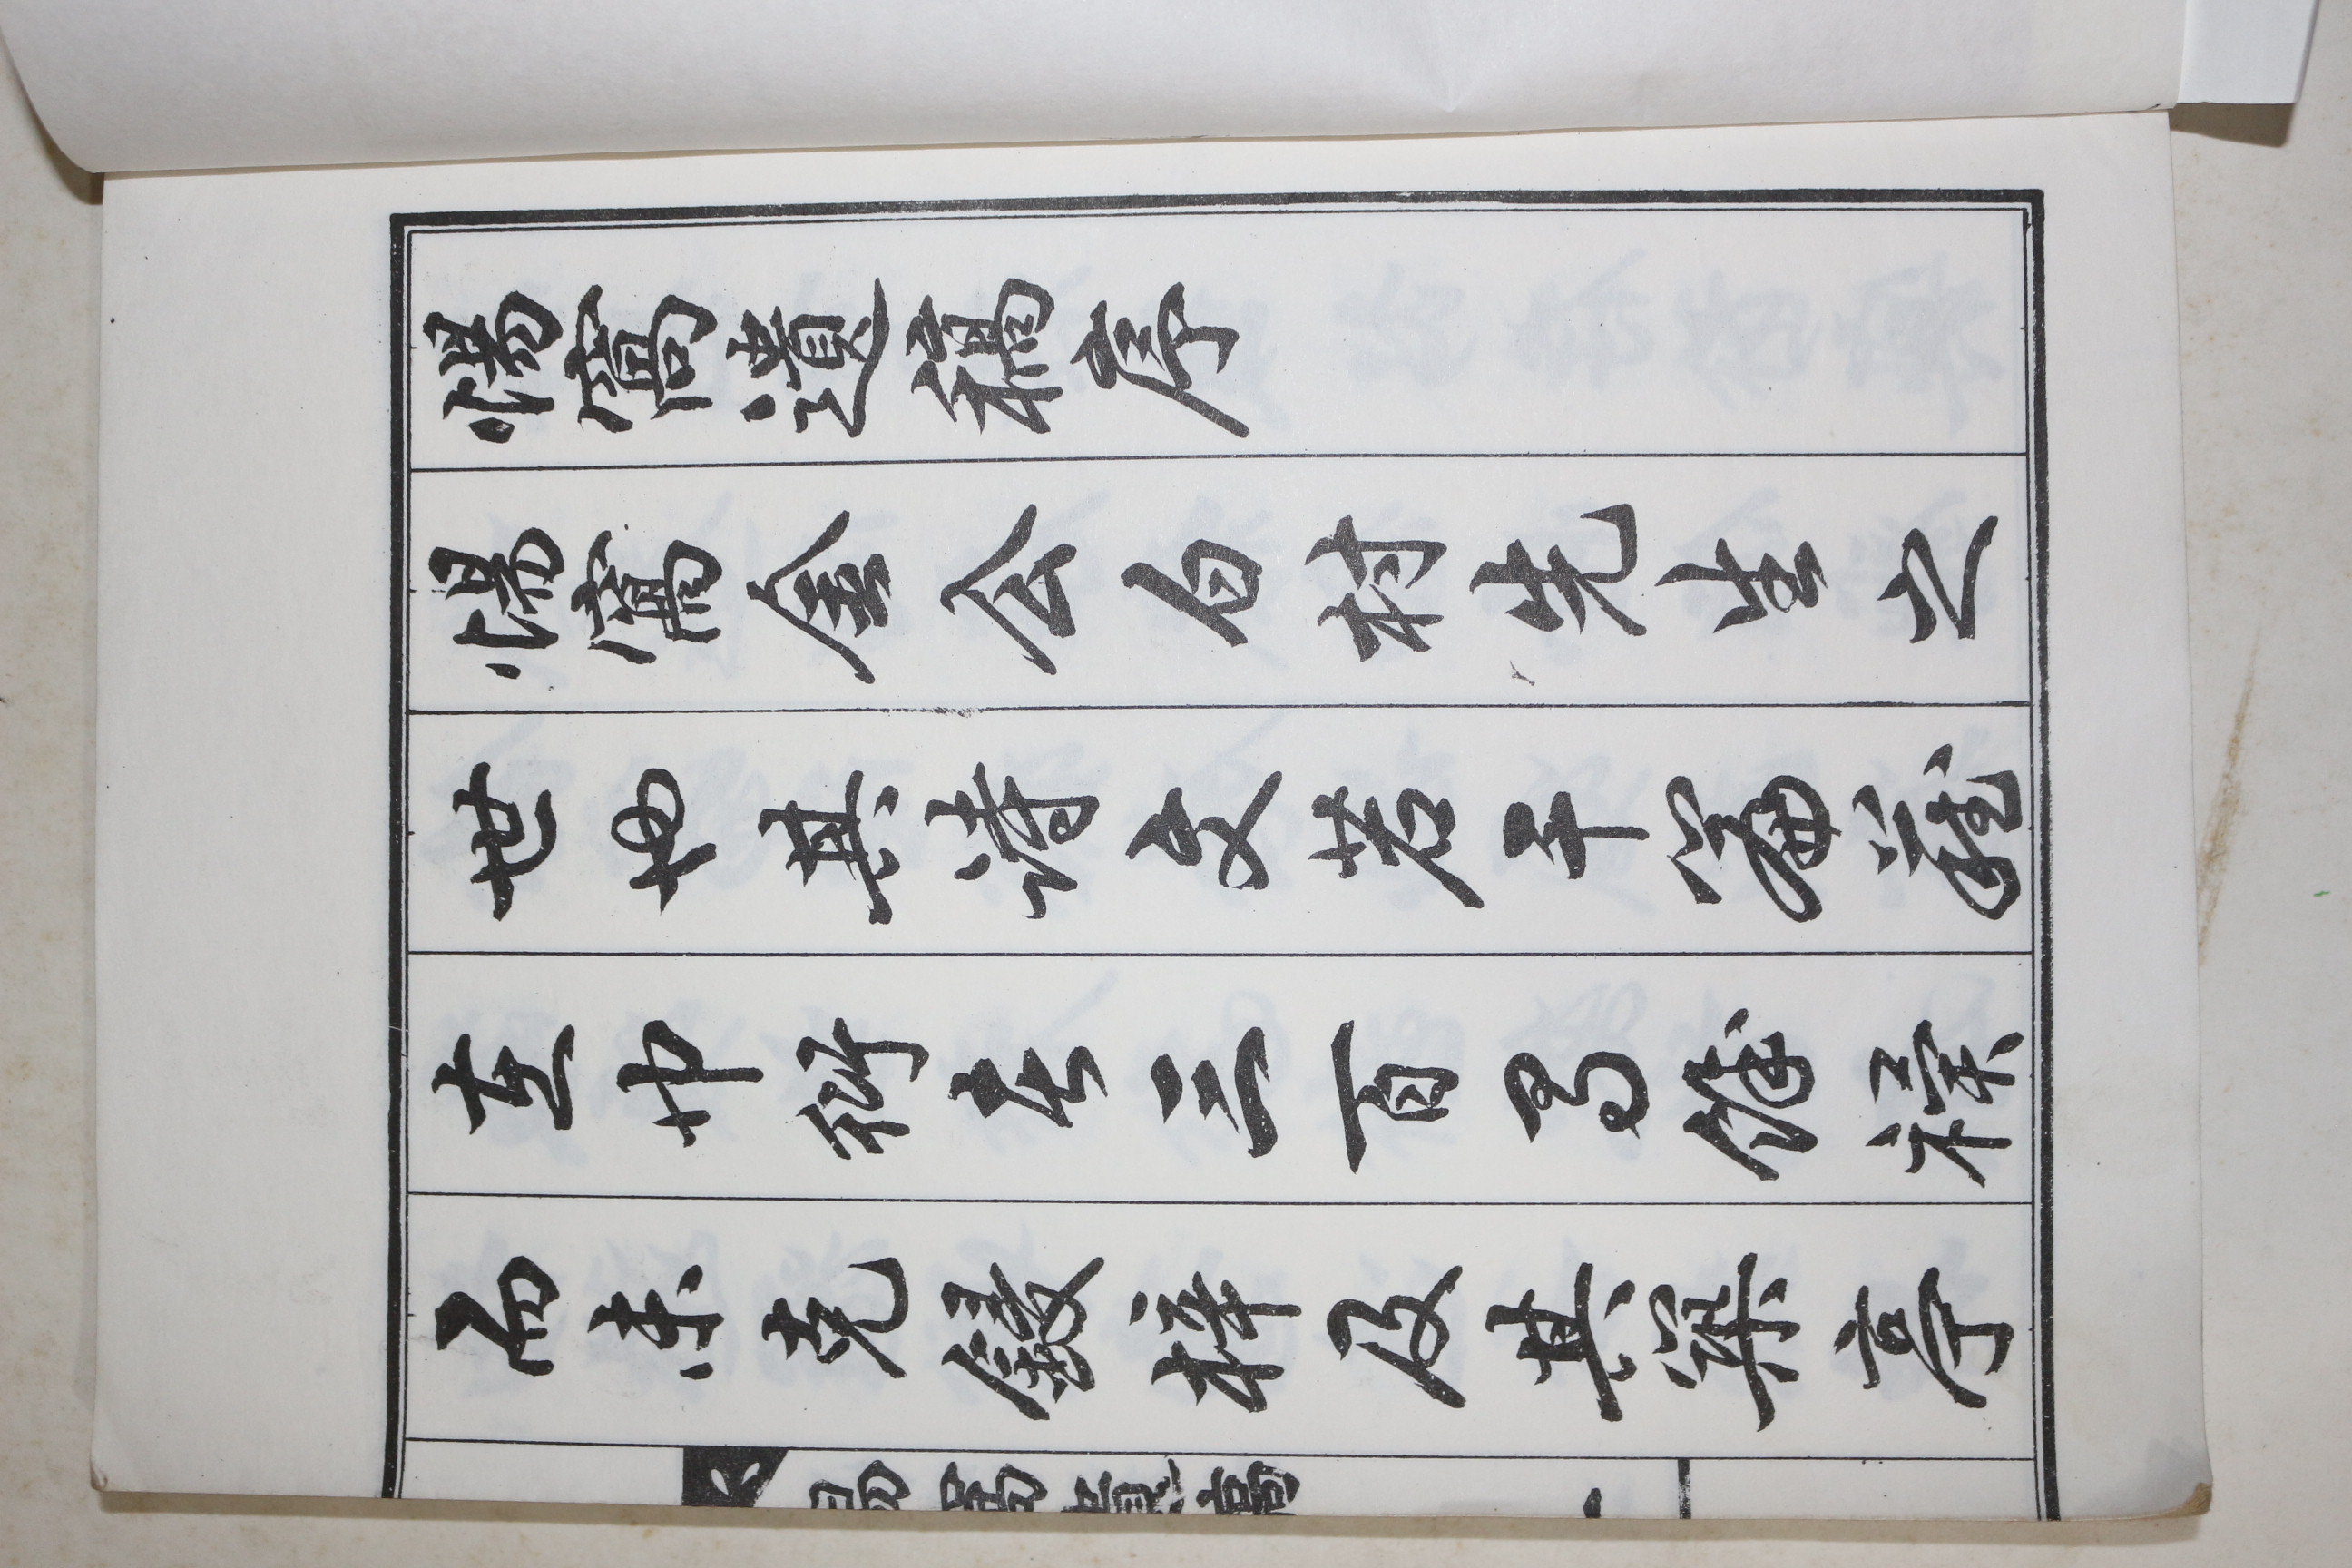 惕窩遺稿序
惕窩金公白村先生之
世也其詩文若干篇藏
在巾衍者三百有餘禩
而未克鋟梓及其築亭
惕窩遺稿